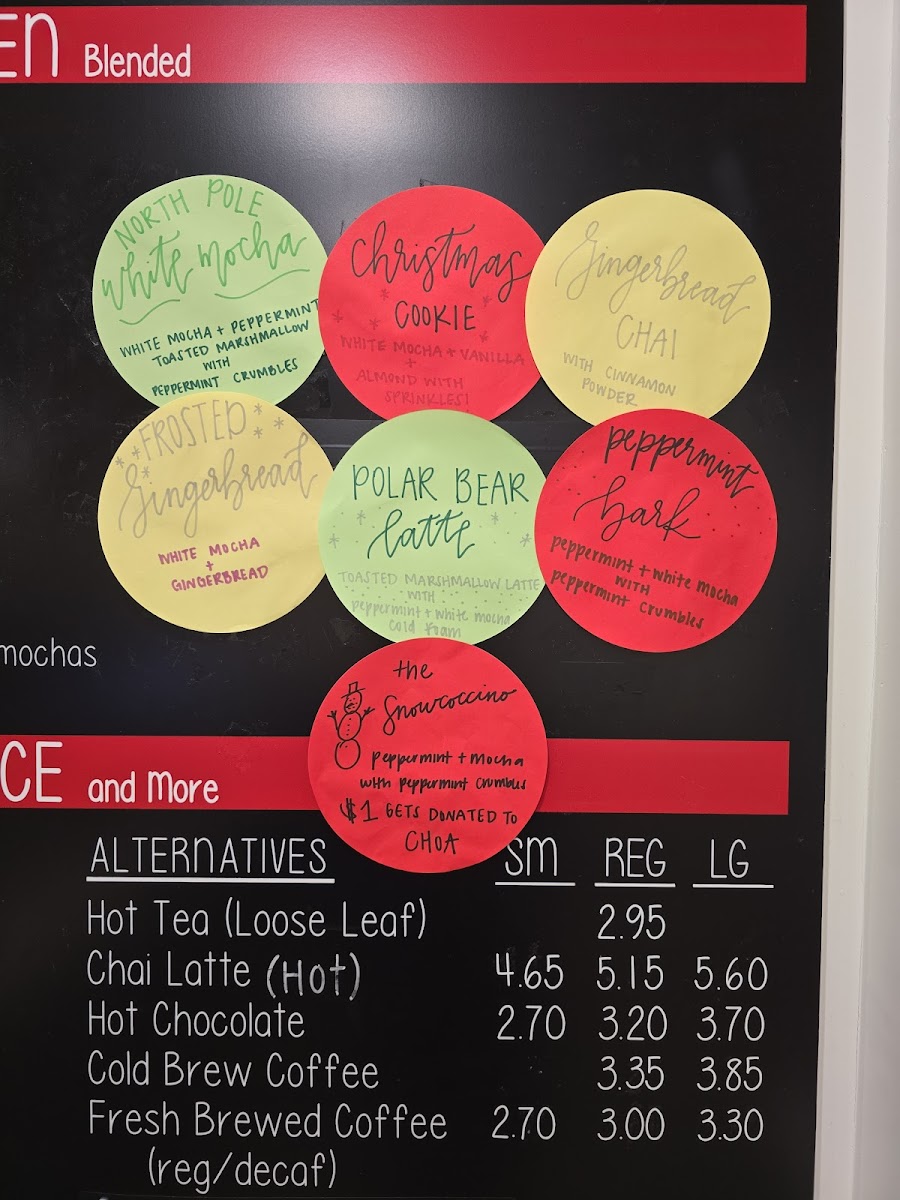 EN Blended
NORTH POLE
white mocha
WHITE MOCHA + PEPPERMINT
TOASTED MARSHMALLOW
WITH
PEPPERMINT CRUMBLES
Christmas
COOKIE
WHITE MOCHA + VANILLA
+
ALMOND WITH
SPRINKLES!
Gingerbread
CHAI
WITH CINNAMON
POWDER
FROSTED
Gingerbread
WHITE MOCHA
+
GINGERBREAD
POLAR BEAR
latte
TOASTED MARSHMALLOW LATTE
WITH
peppermint + white mocha
cold foam
peppermint
bark
peppermint + white mocha
WITH
peppermint crumbles
mochas
the
Snowcoccino
peppermint + mocha
with peppermint crumbles
$1 GETS DONATED TO
CHOA
CE and More
ALTERNATIVES SM REG LG
Hot Tea (Loose Leaf) 2.95
Chai Latte (Hot) 4.65 5.15 5.60
Hot Chocolate 2.70 3.20 3.70
Cold Brew Coffee 3.35 3.85
Fresh Brewed Coffee 2.70 3.00 3.30
(reg/decaf)